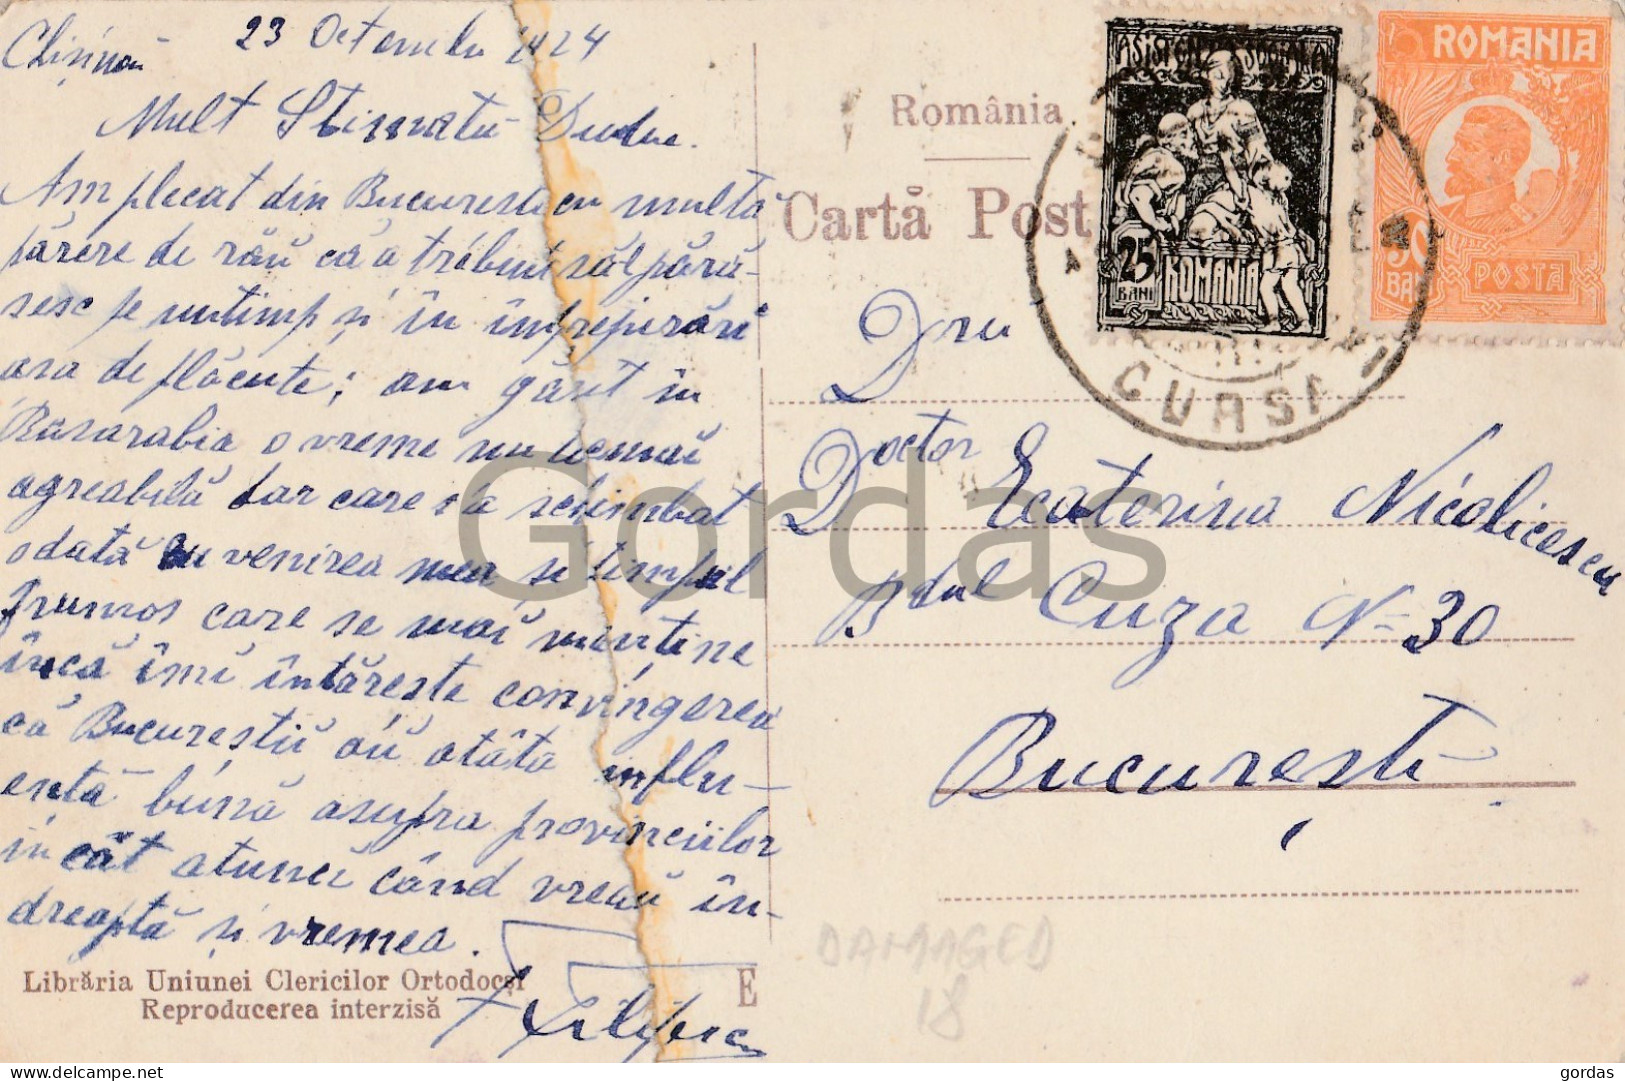 Chișinău 23 Octombrie 1924
Mult Stimată
Am plecat din București cu multă
părere de rău că a trebuit să-l pără-
sesc pe un timp și în împrejurări
așa de plăcute; am găsit în
Basarabia o vreme nu tocmai
agreabilă dar care s'a schimbat
odată cu venirea mea și timpul
frumos care se mai menține
încă îmi întărește convingerea
că Bucureștii au atâta influ-
ență bună asupra provinciilor
în cât atunci când vreau în-
dreaptă și vremea.
Librăria Uniunei Clericilor Ortodocși
Reproducerea interzisă
E
România
Cartă Post
ASISTENȚA SOCIALA
25
BANI
ROMANIA
ROMANIA
50
BANI
POSTA
CURSA
Doctor Ecaterina Nicolicescu
Bdul Cuza No 30
București
DAMAGED
18
Gordas
https://www.delcampe.net
gordas